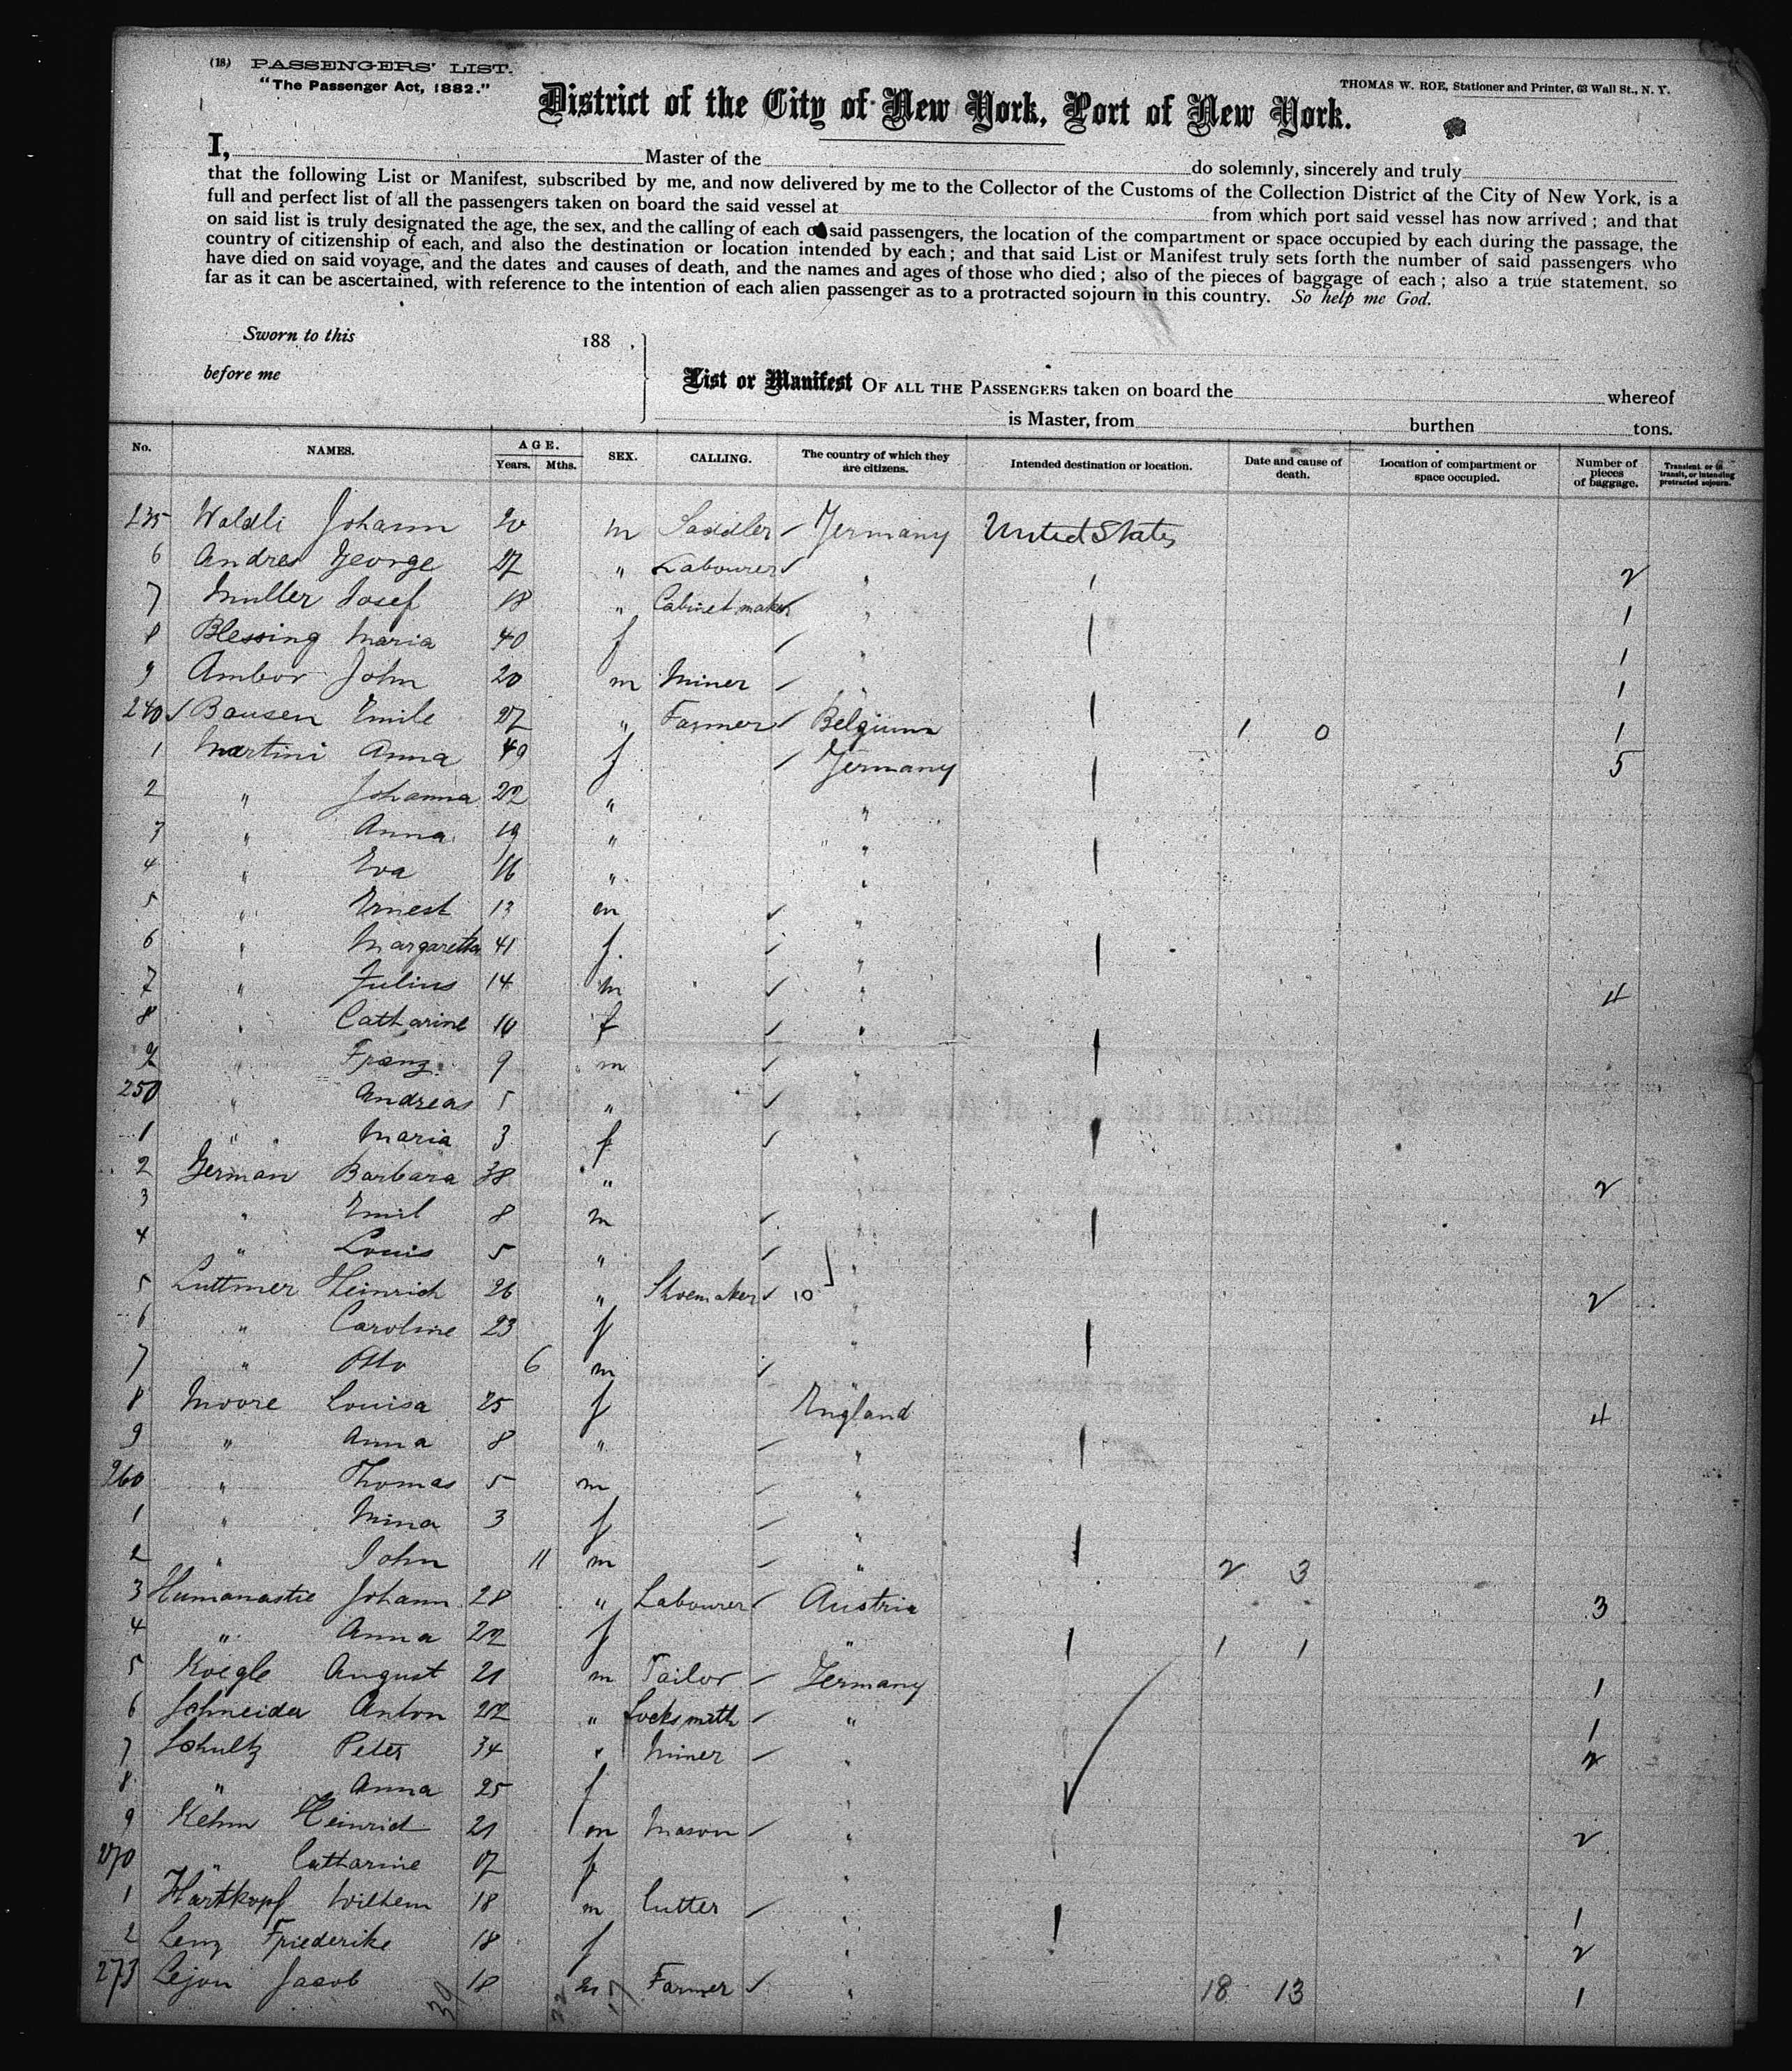 (18) PASSENGERS' LIST.
"The Passenger Act, 1882."
THOMAS W. ROE, Stationer and Printer, 63 Wall St., N. Y.
District of the City of New York, Port of New York.
I, Master of the do solemnly, sincerely and truly
that the following List or Manifest, subscribed by me, and now delivered by me to the Collector of the Customs of the Collection District of the City of New York, is a
full and perfect list of all the passengers taken on board the said vessel at from which port said vessel has now arrived; and that
on said list is truly designated the age, the sex, and the calling of each of said passengers, the location of the compartment or space occupied by each during the passage, the
country of citizenship of each, and also the destination or location intended by each; and that said List or Manifest truly sets forth the number of said passengers who
have died on said voyage, and the dates and causes of death, and the names and ages of those who died; also of the pieces of baggage of each; also a true statement, so
far as it can be ascertained, with reference to the intention of each alien passenger as to a protracted sojourn in this country. So help me God.
Sworn to this 188 ,
before me
List or Manifest OF ALL THE PASSENGERS taken on board the whereof
is Master, from burthen tons.
No. NAMES. AGE. Years. Mths. SEX. CALLING. The country of which they are citizens. Intended destination or location. Date and cause of death. Location of compartment or space occupied. Number of pieces of baggage. Transient, or in transit, or intending protracted sojourn.
235 Waldli Johann 20 m Saddler ✓ Germany United States
6 Andres George 27 " Labourer ✓ " 2
7 Muller Josef 18 " Cabinet maker " 1
8 Blessing Maria 40 f ✓ " 1
9 Ambor John 20 m Miner ✓ " 1
240 ✓ Bausen Emile 27 " Farmer ✓ Belgium 1 0 1
1 Martini Anna 49 f ✓ Germany 5
2 " Johanna 22 " "
3 " Anna 19 " "
4 " Eva 16 " "
5 " Ernest 13 m ✓ "
6 " Margaretha 41 f ✓ "
7 " Julius 14 m ✓ " 4
8 " Catharine 10 f ✓ "
9 " Franz 9 m ✓ "
250 " Andreas 5 " ✓
1 " Maria 3 f ✓ "
2 German Barbara 38 " " 2
3 " Emil 8 m ✓ "
4 " Louis 5 " ✓ "
5 Luttmer Heinrich 26 " Shoemaker ✓ 10 " 2
6 " Caroline 23 f "
7 " Otto 6 m ✓ "
8 Moore Louisa 25 f England 4
9 " Anna 8 " ✓ "
260 " Thomas 5 m ✓ "
1 " Mina 3 f ✓ "
2 " John 11 m ✓ " 2 3
3 Humanastie Johann 28 " Labourer ✓ Austria 3
4 " Anna 22 f " 1 1
5 Koegle August 21 m Tailor ✓ Germany 1
6 Schneider Anton 22 " Locksmith ✓ " 1
7 Schultz Peter 34 " Miner ✓ " 2
8 " Anna 25 f "
9 Kehm Heinrich 21 m Mason ✓ " 2
270 " Catharine 27 f "
1 Hartkopf Wilhem 18 m Cutter ✓ " 1
2 Lenz Friederike 18 f " 2
273 Lejon Jacob 18 m Farmer ✓ " 18 13 1
39 22 17